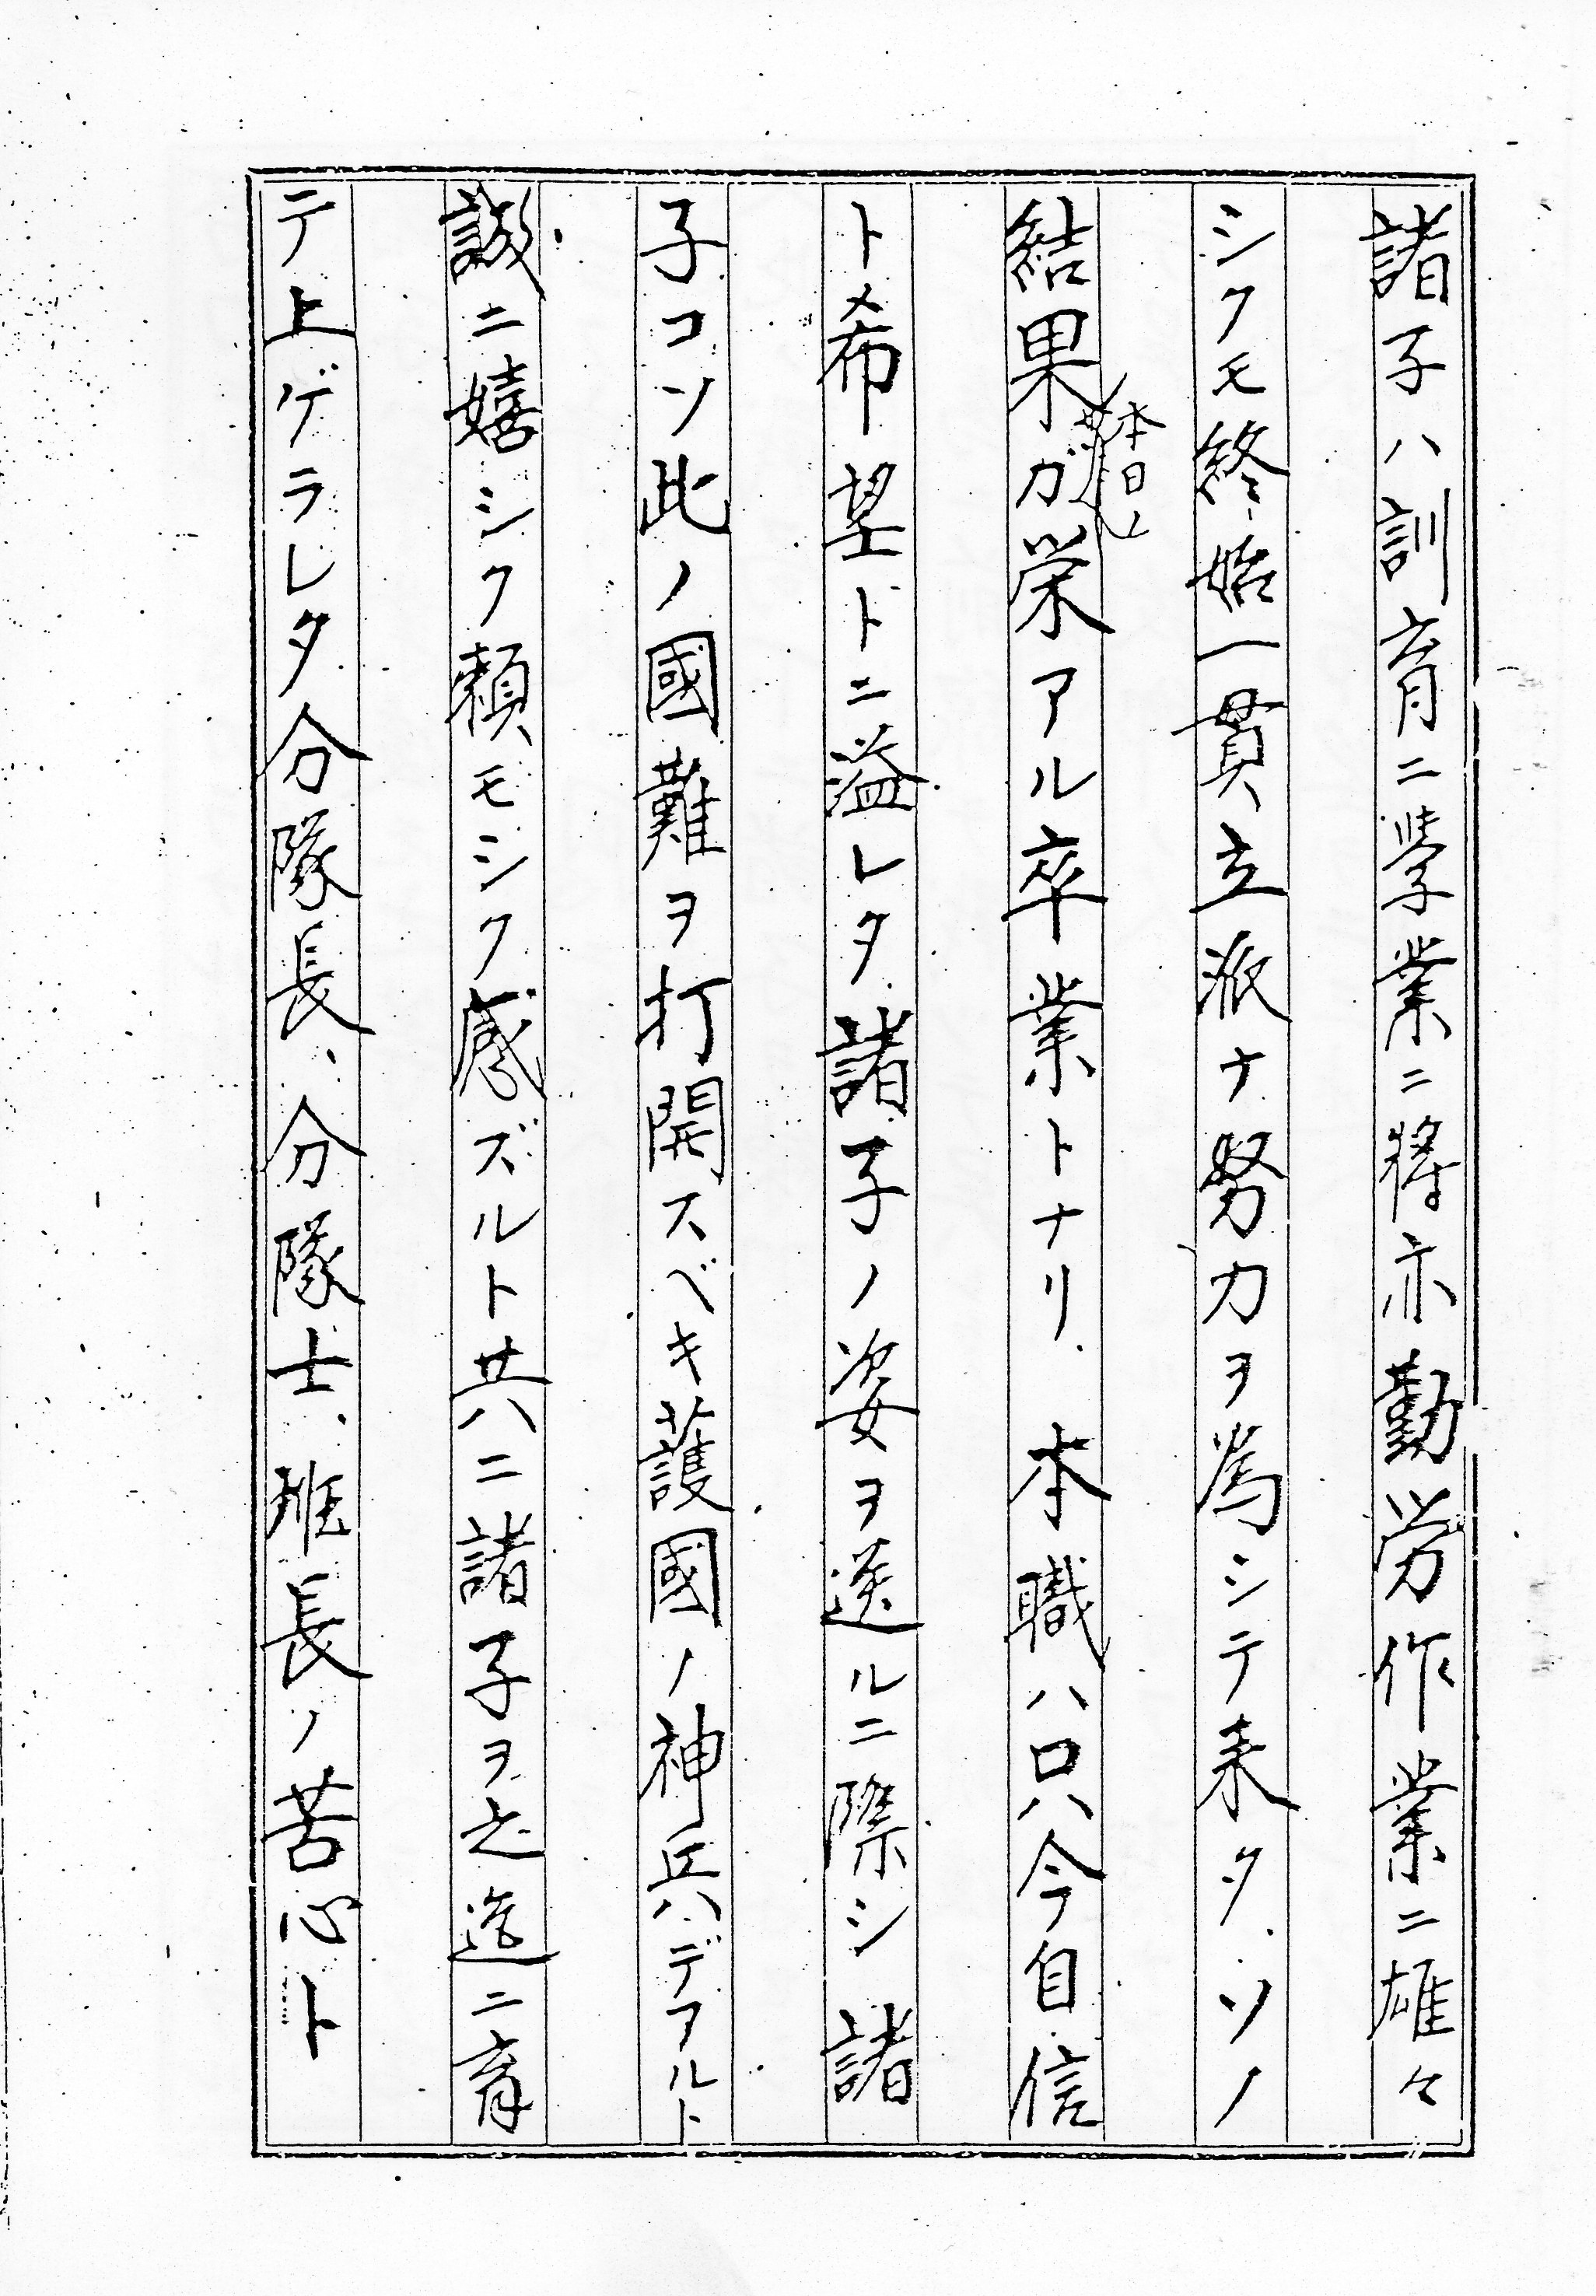 諸子ハ訓育ニ學業ニ將亦勤労作業ニ雄々
シクモ終始一貫立派ナ努力ヲ為シテ来タソノ
結果ガ本日ノ栄アル卒業トナリ本職ハ只今自信
ト希望トニ溢レタ諸子ノ姿ヲ送ルニ際シ諸
子コソ此ノ國難ヲ打開スベキ護國ノ神兵デアルト
誠ニ嬉シク頼モシク感ズルト共ニ諸子ヲ之迄ニ育
テ上ゲラレタ分隊長、分隊士、班長ノ苦心ト